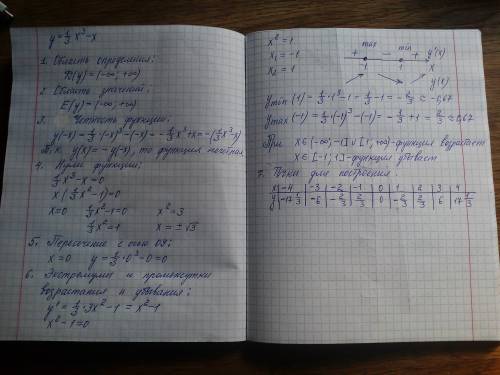 y = 1/3 x³ - x
1. Область определения:
D(y) = (-∞; +∞)
2. Область значений:
E(y) = (-∞; +∞)
3. Четность функции:
y(-x) = 1/3 · (-x)³ - (-x) = -1/3 x³ + x = -(1/3 x³ - x)
Т.к. y(x) = -y(-x), то функция нечетная.
4. Нули функции:
1/3 x³ - x = 0
x (1/3 x² - 1) = 0
x = 0 1/3 x² - 1 = 0 x² = 3
1/3 x² = 1 x = ± √3
5. Пересечение с осью ОУ:
x = 0 y = 1/3 · 0³ - 0 = 0
6. Экстремумы и промежутки
возрастания и убывания:
y' = 1/3 · 3x² - 1 = x² - 1
x² - 1 = 0
x² = 1
x₁ = -1
x₂ = 1
max min
+ - + y'(x)
-1 1 x
y(x)
y min (1) = 1/3 · 1³ - 1 = 1/3 - 1 = -2/3 ≈ -0,67
y max (-1) = 1/3 · (-1)³ - (-1) = -1/3 + 1 = 2/3 ≈ 0,67
При x ∈ (-∞; -1] ∪ [1; +∞) - функция возрастает
x ∈ [-1; 1] - функция убывает
7. Точки для построения:
x -4 -3 -2 -1 0 1 2 3 4
y -17 1/3 -6 -2/3 2/3 0 -2/3 2/3 6 17 1/3